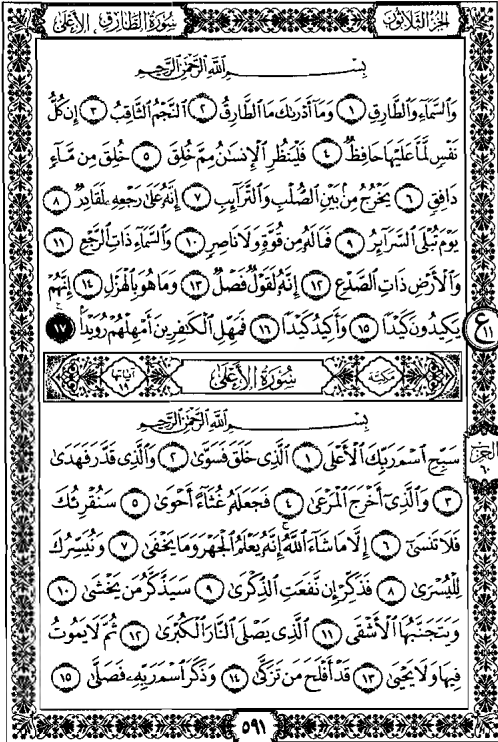 الجزء الثلاثون
سورة الطارق الأعلى
بِسْمِ اللَّهِ الرَّحْمَٰنِ الرَّحِيمِ
وَالسَّمَاءِ وَالطَّارِقِ ١ وَمَا أَدْرَىٰكَ مَا الطَّارِقُ ٢ النَّجْمُ الثَّاقِبُ ٣ إِن كُلُّ
نَفْسٍ لَّمَّا عَلَيْهَا حَافِظٌ ٤ فَلْيَنظُرِ الْإِنسَٰنُ مِمَّ خُلِقَ ٥ خُلِقَ مِن مَّاءٍ
دَافِقٍ ٦ يَخْرُجُ مِن بَيْنِ الصُّلْبِ وَالتَّرَائِبِ ٧ إِنَّهُ عَلَىٰ رَجْعِهِ لَقَادِرٌ ٨
يَوْمَ تُبْلَى السَّرَائِرُ ٩ فَمَا لَهُ مِن قُوَّةٍ وَلَا نَاصِرٍ ١٠ وَالسَّمَاءِ ذَاتِ الرَّجْعِ ١١
وَالْأَرْضِ ذَاتِ الصَّدْعِ ١٢ إِنَّهُ لَقَوْلٌ فَصْلٌ ١٣ وَمَا هُوَ بِالْهَزْلِ ١٤ إِنَّهُمْ
يَكِيدُونَ كَيْدًا ١٥ وَأَكِيدُ كَيْدًا ١٦ فَمَهِّلِ الْكَٰفِرِينَ أَمْهِلْهُمْ رُوَيْدًا ١٧
ع ١١
مكية
سورة الأعلى
آياتها ١٩
بِسْمِ اللَّهِ الرَّحْمَٰنِ الرَّحِيمِ
سَبِّحِ اسْمَ رَبِّكَ الْأَعْلَى ١ الَّذِي خَلَقَ فَسَوَّىٰ ٢ وَالَّذِي قَدَّرَ فَهَدَىٰ
الحزب ٦٠
٣ وَالَّذِي أَخْرَجَ الْمَرْعَىٰ ٤ فَجَعَلَهُ غُثَاءً أَحْوَىٰ ٥ سَنُقْرِئُكَ
فَلَا تَنسَىٰ ٦ إِلَّا مَا شَاءَ اللَّهُ إِنَّهُ يَعْلَمُ الْجَهْرَ وَمَا يَخْفَىٰ ٧ وَنُيَسِّرُكَ
لِلْيُسْرَىٰ ٨ فَذَكِّرْ إِن نَّفَعَتِ الذِّكْرَىٰ ٩ سَيَذَّكَّرُ مَن يَخْشَىٰ ١٠
وَيَتَجَنَّبُهَا الْأَشْقَى ١١ الَّذِي يَصْلَى النَّارَ الْكُبْرَىٰ ١٢ ثُمَّ لَا يَمُوتُ
فِيهَا وَلَا يَحْيَىٰ ١٣ قَدْ أَفْلَحَ مَن تَزَكَّىٰ ١٤ وَذَكَرَ اسْمَ رَبِّهِ فَصَلَّىٰ ١٥
٥٩١